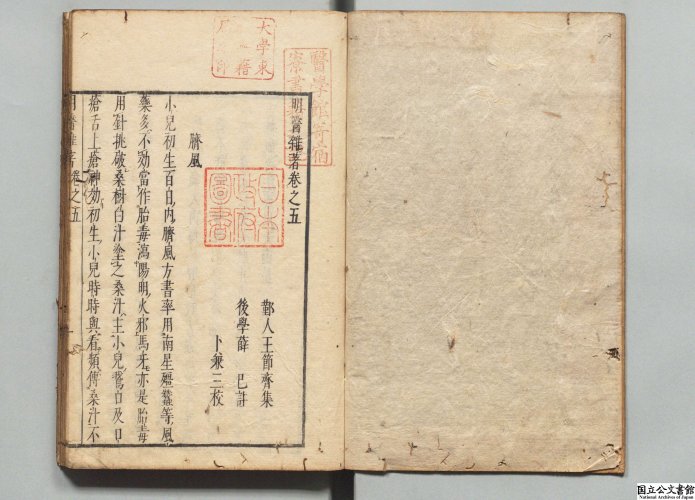 明醫雜著卷之五
鄞人王節齊集
後學薛己註
卜兼三校
臍風
小兒初生百日內臍風方書率用南星殭蠶等風
藥多不効當作胎毒瀉陽明火邪馬牙亦是胎毒
用針挑破桑樹白汁塗之桑汁主小兒鵞口及口
瘡舌上瘡神効初生小兒時時與看頻傅桑汁不
明醫雜著卷之五
大學東
醫學
日本
政府
圖書
国立公文書館
National Archives of Japan